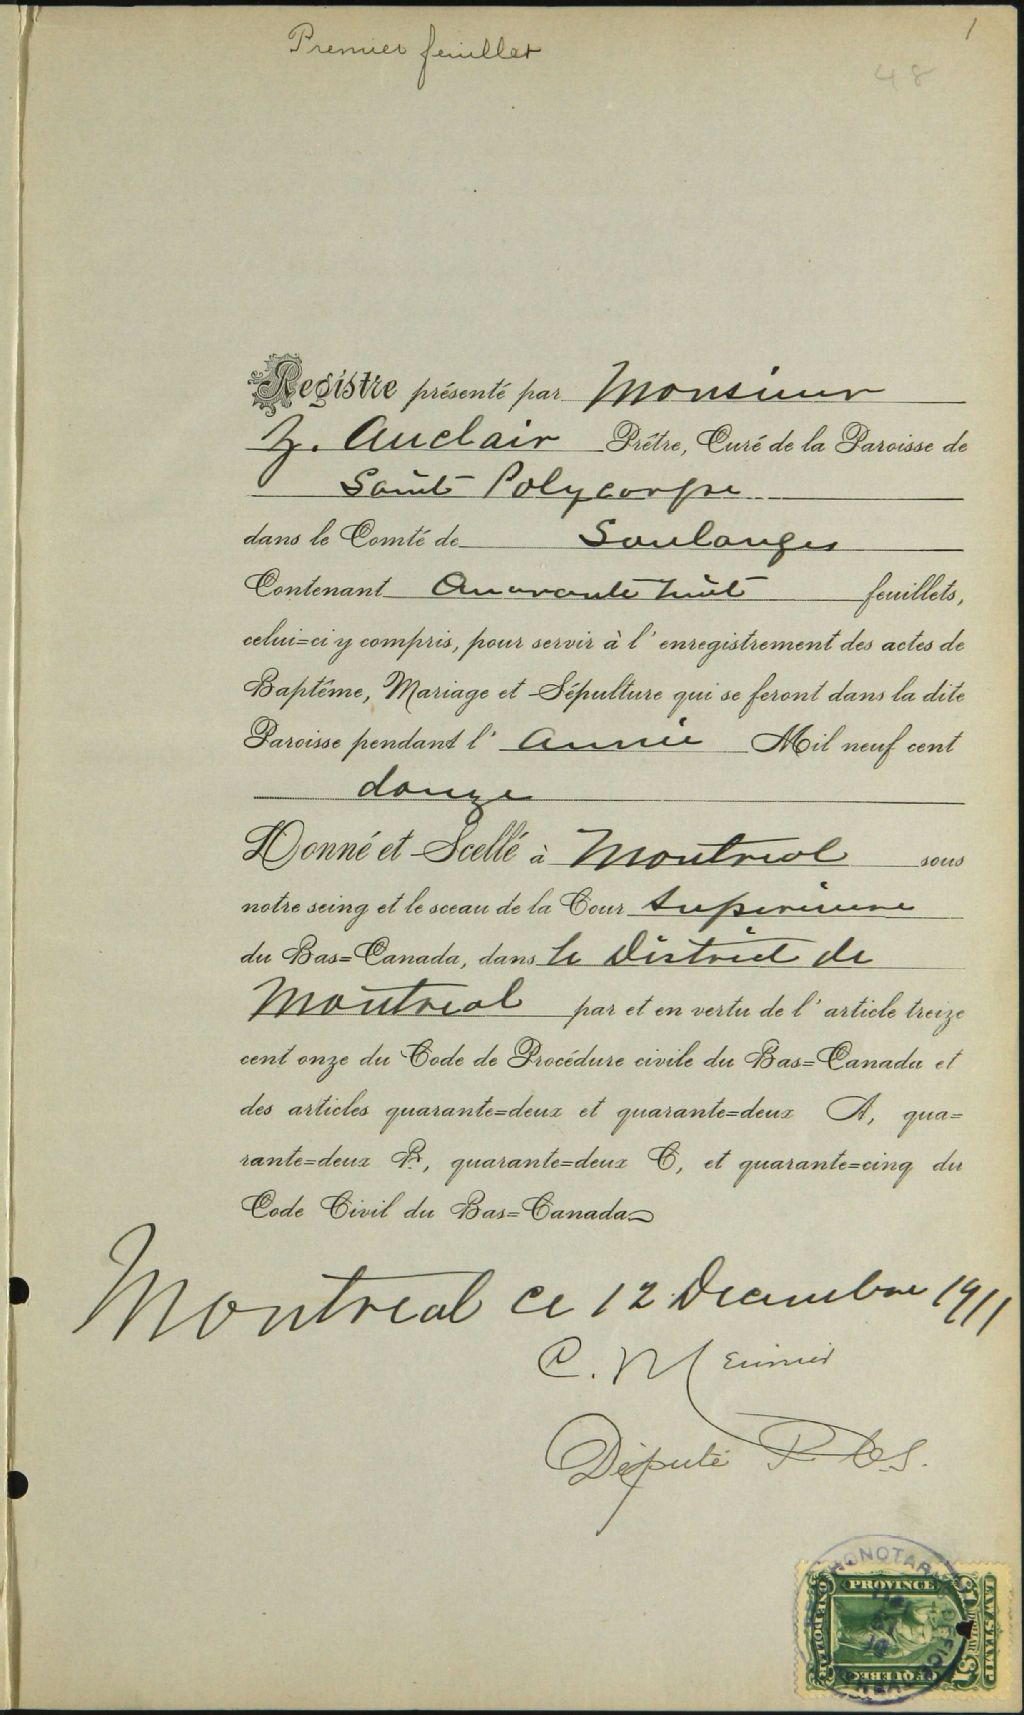 1
Premier feuillet
48
Registre présenté par Monsieur
Z. Auclair Prêtre, Curé de la Paroisse de
Saint Polycarpe
dans le Comté de Soulanges
Contenant Quarante huit feuillets,
celui=ci y compris, pour servir à l'enregistrement des actes de
Baptême, Mariage et Sépulture qui se feront dans la dite
Paroisse pendant l'année Mil neuf cent
douze
Donné et Scellé à Montreal sous
notre seing et le sceau de la Cour Superieure
du Bas=Canada, dans le District de
Montreal par et en vertu de l'article treize
cent onze du Code de Procédure civile du Bas=Canada et
des articles quarante=deux et quarante=deux A, qua=
rante=deux B, quarante=deux C, et quarante=cinq du
Code Civil du Bas=Canada
Montreal ce 12 Decembre 1911
C. Meunier
Député P C S.
PROVINCE
OF QUEBEC
LAW STAMP
$1 DOLLAR $1